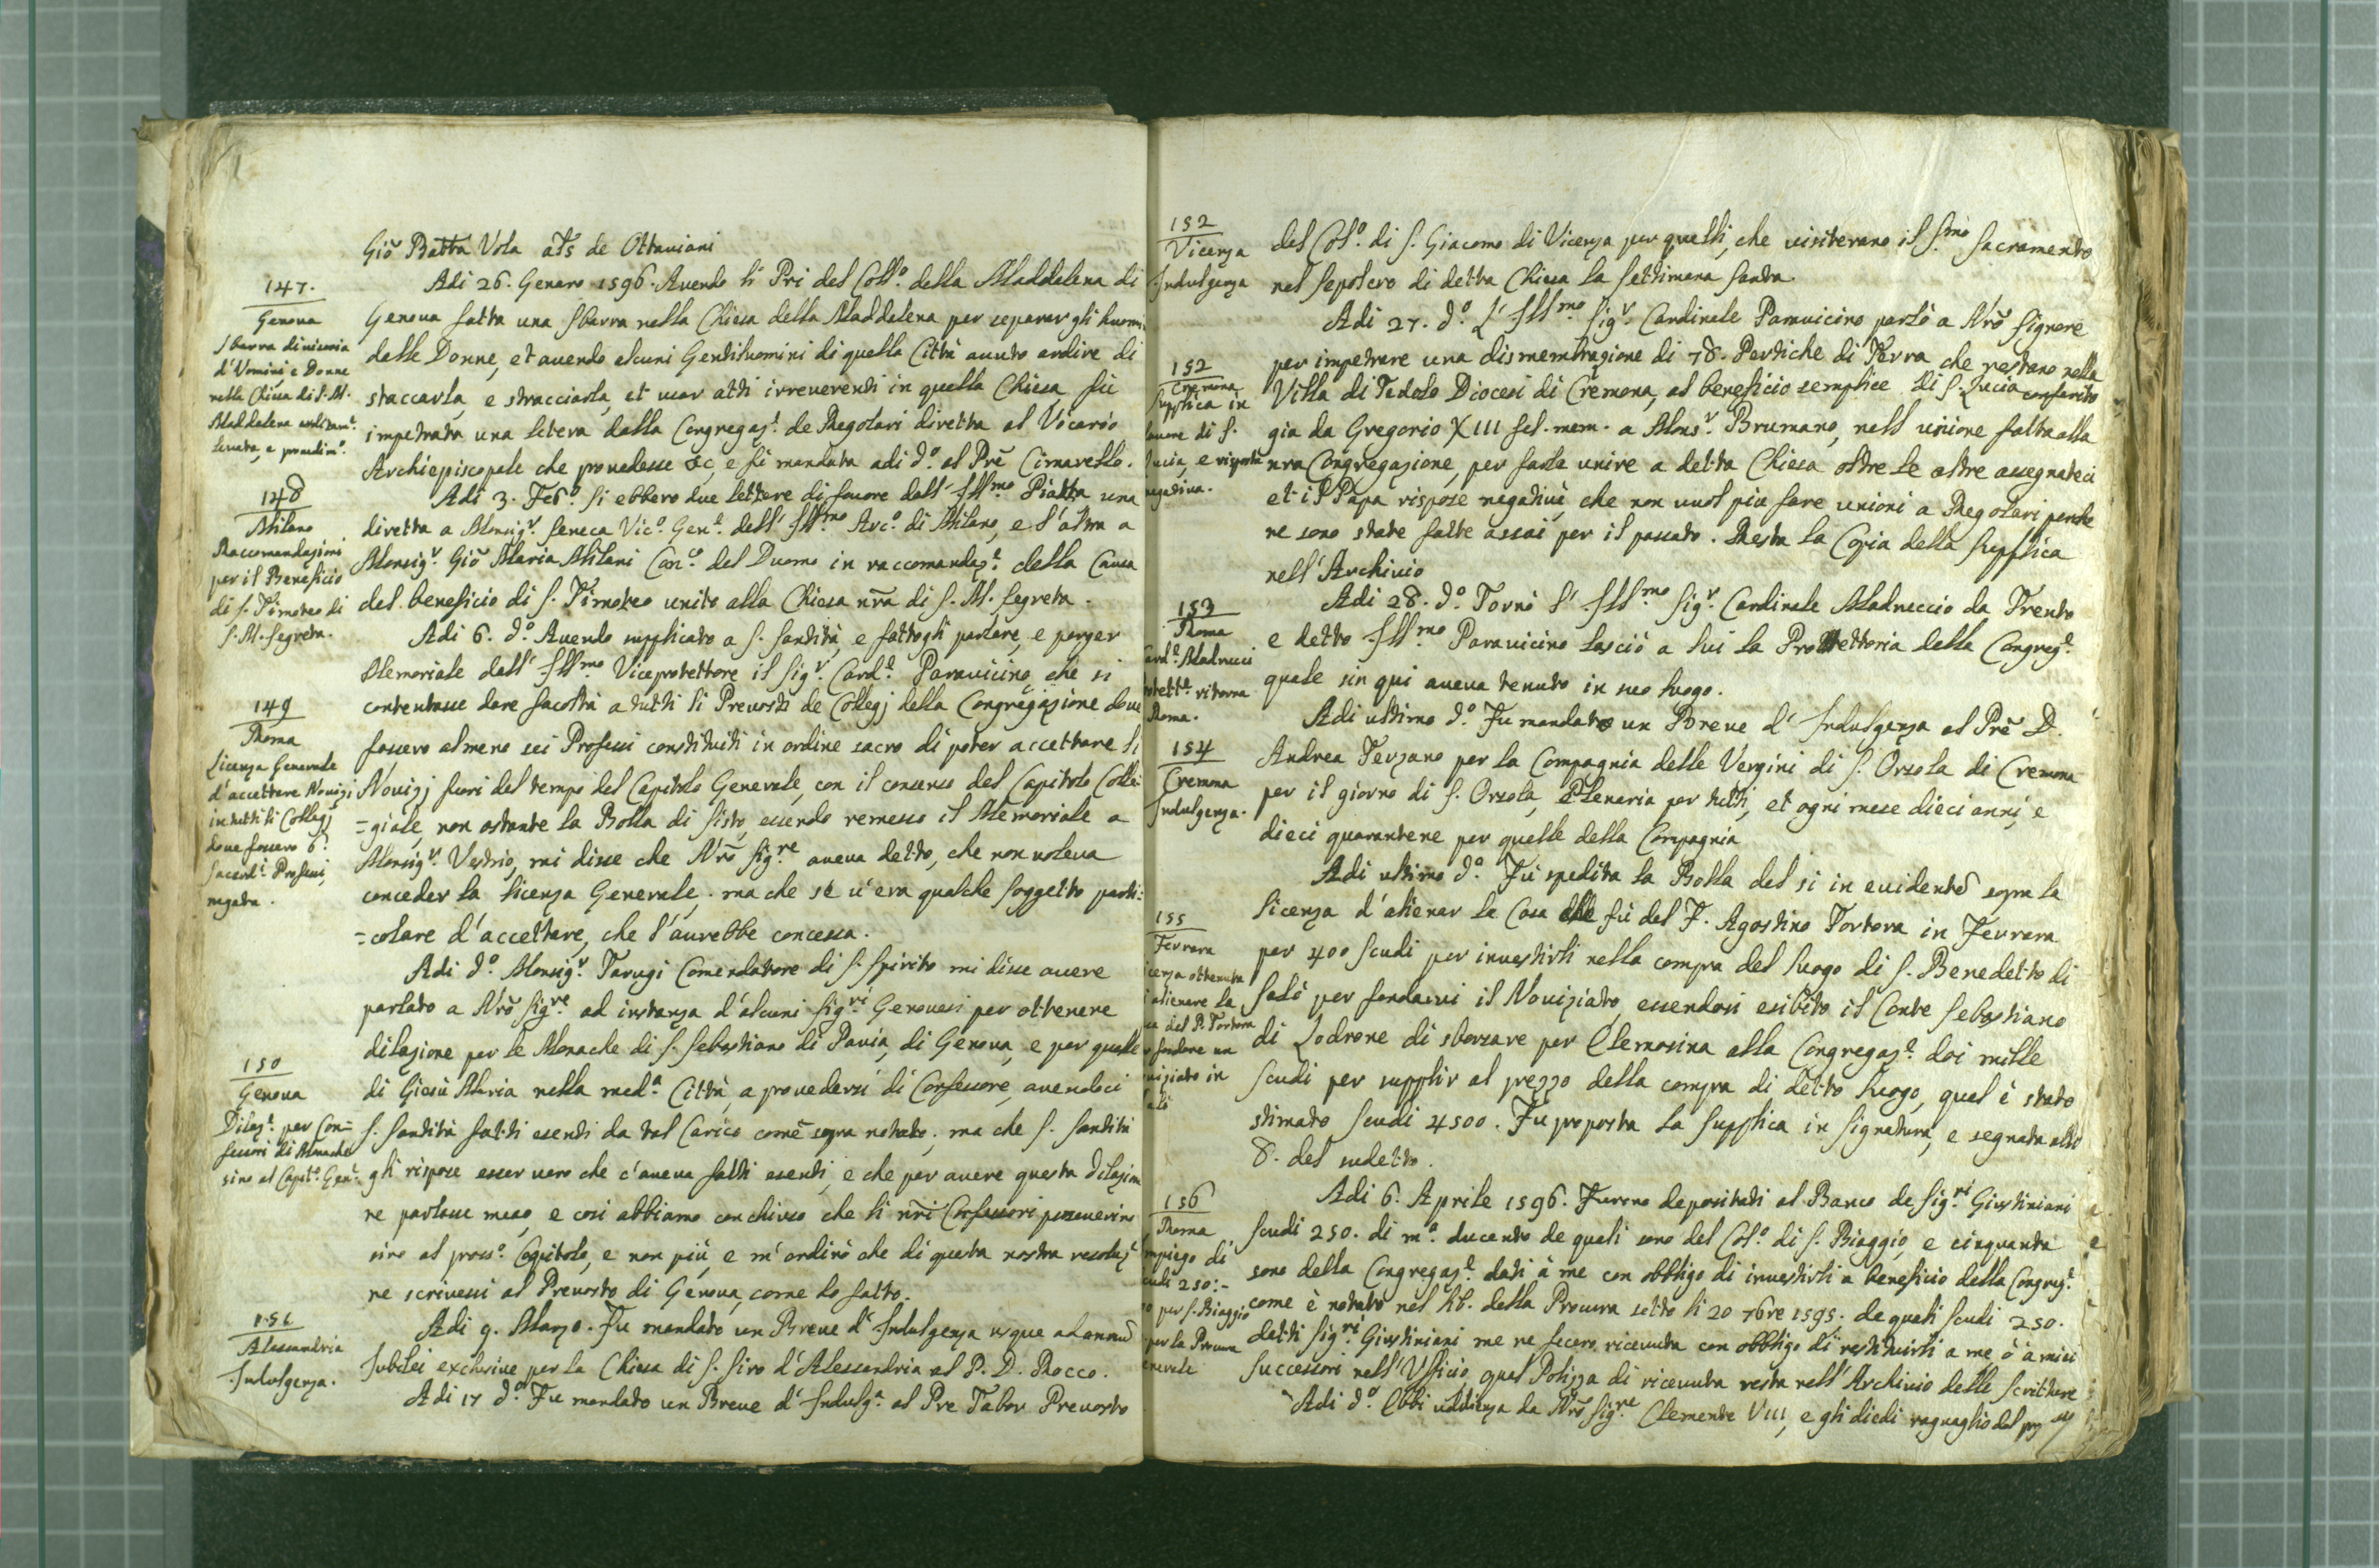 Giõ Batta Vola als de Ottauiani
147.
Genoua
Sbarra diuisoria
d'Vomini e Donne
nella Chiesa di S. M.
Maddalena arditamᵗ.
leuata, e prouedimᵒ.
Adi 26. Genaro 1596. Auendo li Pri del Collᵒ. della Maddalena di
Genoua fatta una sbarra nella Chiesa della Maddalena per separar gli huomi
dalle Donne, et auendo alcuni Gentiluomini di quella Città auuto ardire di
staccarla, e stracciarla, et usar atti irreuerenti in quella Chiesa fù
impetrata una letera dalla Congregazᵉ. de Regolari diretta al Vicario
Archiepiscopale che prouedesse &c, e fù mandata adi dᵒ. al Prẽ Cimarello.
148
Milano
Raccomandazioni
per il Beneficio
di S. Timoteo di
S. M. Segreta.
Adi 3. Febᵒ. Si ebbero due lettere di fauore dall' Illᵐᵒ Piatta una
diretta a Monsigʳ. Seneca Vicᵒ. Genᵉ. dell' Illᵐᵒ. Arcᵒ. di Milano, e l'altra a
Monsigʳ. Giõ Maria Milani Canᶜᵒ. del Duomo in raccomandazᵉ. della Causa
del beneficio di S. Timoteo unito alla Chiesa nr̃a di S. M. Segreta.
149
Roma
Licenza Generale
d'accettare Nouizi
in tutti li Collegj
doue fossero 6.
Sacerdᵗⁱ. Professi,
negata.
Adi 6. dᵒ. Auendo supplicato a S. Santità, e fattogli parlare, e porger
Memoriale dall' Illᵐᵒ Viceprotettore il Sigʳ. Cardᵉ. Parauicino, che si
contentasse dare facoltà a tutti li Preuosti de Collegj della Congregazione doue
fossero almeno sei Professi constituiti in ordine sacro di poter accettare li
Nouizj fuori del tempo del Capitolo Generale, con il consenso del Capitolo Colle
=giale, non ostante la Bolla di Sisto, essendo remesso il Memoriale a
Monsigʳ. Vestrio, mi disse che Nr̃o Sigʳᵉ aueua detto, che non uoleua
conceder la licenza Generale. ma che se u'era qualche soggetto parti=
=colare d'accettare, che l'aurebbe concessa.
150
Genoua
Dilazᵉ. per Con=
fessori di Monache
sino al Capitᵒ. Genᵉ.
Adi dᵒ. Monsigʳ. Tarugi Comendatore di S. Spirito mi disse auere
parlato a Nr̃o Sigʳᵉ ad instanza d'alcuni Sigʳⁱ Genouesi per ottenere
dilazione per le Monache di S. Sebastiano di Pauia, di Genoua, e per quelle
di Giesù Maria nella medᵃ. Città, a prouedersi di Confessore, auendoci
S. Santità fatti esenti da tal Carico come sopra notato; ma che S. Santità
gli rispose esser uero che c'aueua fatti esenti, e che per auere questa dilazion
ne parlasse meco, e cosi abbiamo conchiuso che li nr̃i Confessori perseuerino
sino al prossᵒ. Capitolo, e non più, e m'ordinò che di questa nostra resoluzᵉ
ne scriuessi al Preuosto di Genoua, come ho fatto.
151
Alessandria
Indulgenza.
Adi 9. Marzo. Fu mandato un Breue d' Indulgenza usque ad annũ
Iubilei exclusiue per la Chiesa di S. Siro d'Alessandria al P. D. Rocco.
Adi 17 dᵒ. Fu mandato un Breue d' Indulgᵃ. al Pre Tabor Preuosto
152
Vicenza
Indulgenza
del Colᵒ. di S. Giacomo di Vicenza per quelli, che uisiterano il Sᵐᵒ Sacramento
nel sepolcro di detta Chiesa la Settimana Santa.
152
Cremona
Supplica in
fauore di S.
Lucia, e risposta
negatiua.
Adi 27. dᵒ. L' Illᵐᵒ. Sigʳ. Cardinale Parauicino parlò a Nr̃o Signore
per impetrare una dismembrazione di 78. Pertiche di Terra che restano nella
Villa di Tedolo Diocesi di Cremona, al beneficio semplice di S. Lucia conferito
gia da Gregorio XIII fel. mem. a Monsʳ. Brumano, nell' unione fatta alla
nr̃a Congregazione, per farle unire a detta Chiesa oltre le altre assegnateci
et il Papa rispose negatiuè, che non uuol piu fare unioni a Regolari perche
ne sono state fatte assai per il passato. Resta la Copia della Supplica
nell' Archiuio
153
Roma
Cardᵉ. Madrucci
protettᵉ. ritorna
Roma.
Adi 28. dᵒ. Tornò l' Illᵐᵒ Sigʳ. Cardinale Madruccio da Trento
e detto Illᵐᵒ Parauicino lasciò a lui la Protettoria della Congregᵉ.
quale sin qui aueua tenuto in suo luogo.
154
Cremona
Indulgenza.
Adi ultimo dᵒ. Fu mandato un Breue d' Indulgenza al Prẽ D.
Andrea Terzano per la Compagnia delle Vergini di S. Orsola di Cremona
per il giorno di S. Orsola, Plenaria per tutti, et ogni mese dieci anni, e
dieci quarantene per quelle della Compagnia
155
Ferrara
icenza ottenuta
alienare la
sa del P. Tortora
fondare un
uiziato in
alò
Adi ultimo dᵒ. Fu spedita la Bolla del si in euidentẽ sopra la
licenza d'alienar la Casa che fù del P. Agostino Tortora in Ferrara
per 400 scudi per inuestirli nella compra del luogo di S. Benedetto di
Salò per fondarui il Nouiziato, essendosi esibito il Conte Sebastiano
di Lodrone di sborsare per Elemosina alla Congregazᵉ. doi mille
scudi per supplir al prezzo della compra di detto luogo, qual è stato
stimato scudi 4500. Fu proposta la supplica in Signatura, e segnata alli
8. del sudetto.
156
Roma
mpiego di
cudi 250:-
per S. Biaggio
per la Procura
enerale
Adi 6. Aprile 1596. Furono depositati al Banco de Sigʳⁱ Giustiniani
scudi 250. di mᵃ. ducento de quali sono del Colᵒ. di S. Biaggio, e cinquanta
sono della Congregazᵉ. dati à me con obbligo di inuestirli a beneficio della Congregᵉ.
come è notato nel lib. della Procura sotto li 20 7bre 1595. de quali scudi 250.
detti Sigʳⁱ Giustiniani me ne fecero riceuuta con obbligo di restituirli a me, ò à miei
Successori nell' Vfficio, qual Polizza di riceuuta resta nell' Archiuio delle Scritture
Adi dᵒ. Ebbi udienza da Nr̃o Sigʳᵉ Clemente VIII, e gli diedi raguaglio del